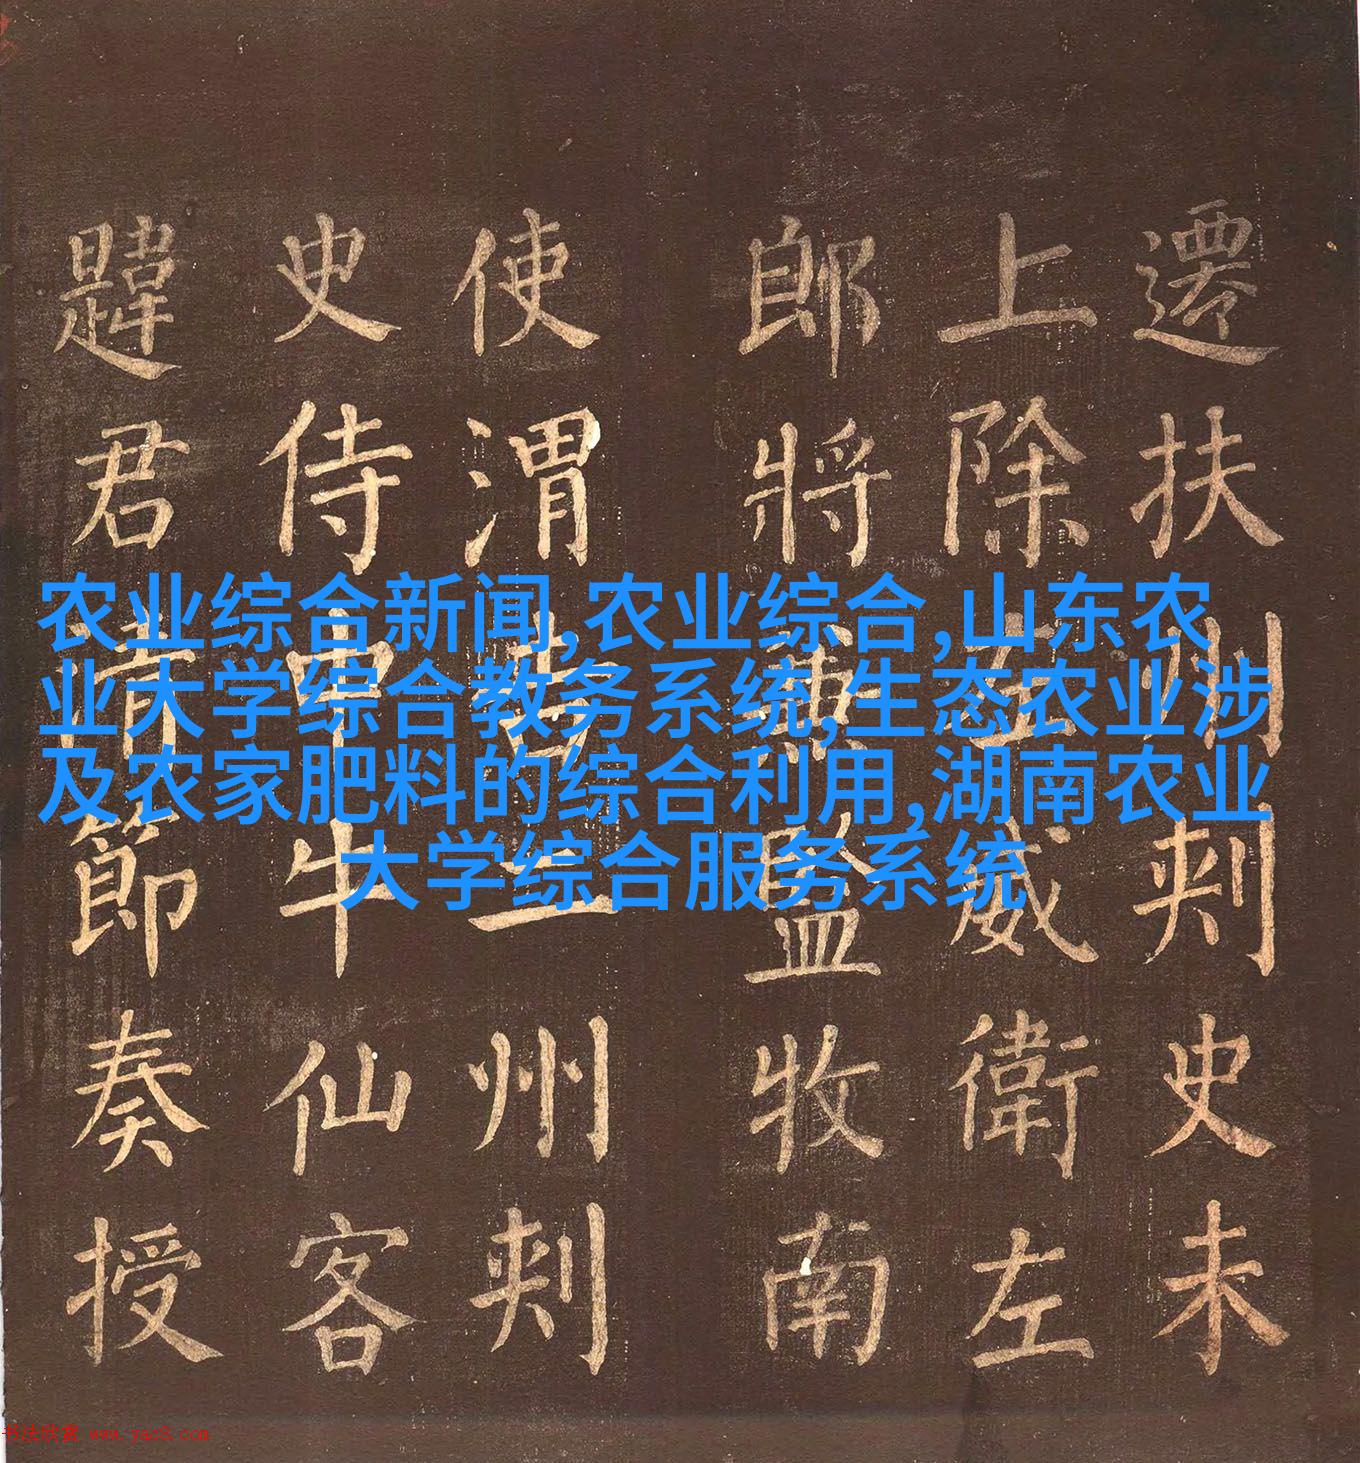 遷扶州刾史未
上除左威衛左
郎將兼監牧南
使渭吉二州刾
史侍中牛仙客
韙君清節奏授
农业综合新闻,农业综合,山东农
业大学综合教务系统,生态农业涉
及农家肥料的综合利用,湖南农业
大学综合服务系统
书法欣赏 www.yac8.com